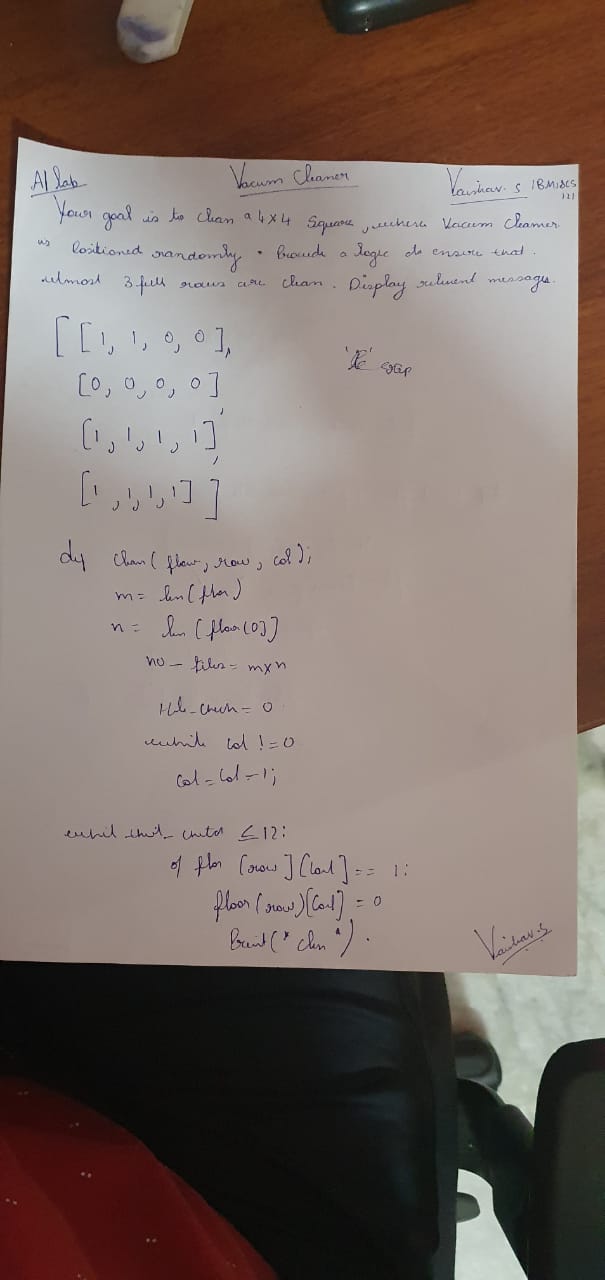 AI lab Vacum Cleaner Vaishav. S 1BM18CS
121
Your goal is to clean a 4x4 Square, where Vacum Cleaner
is Positioned randomly. Provide a logic to ensure that
atmost 3 full rows are clean. Display relevent messages.
[[1, 1, 0, 0],
[0, 0, 0, 0]
,
[1, 1, 1, 1]
,
[1, 1, 1, 1]]
def clean( floor, row, col);
m = len(floor)
n = len (floor[0])
no_tiles = mxn
= 0
while col != 0
col = col - 1;
≤ 12:
if floor [row][col] == 1:
floor[row][col] = 0
Print("clean").
Vaishav. S